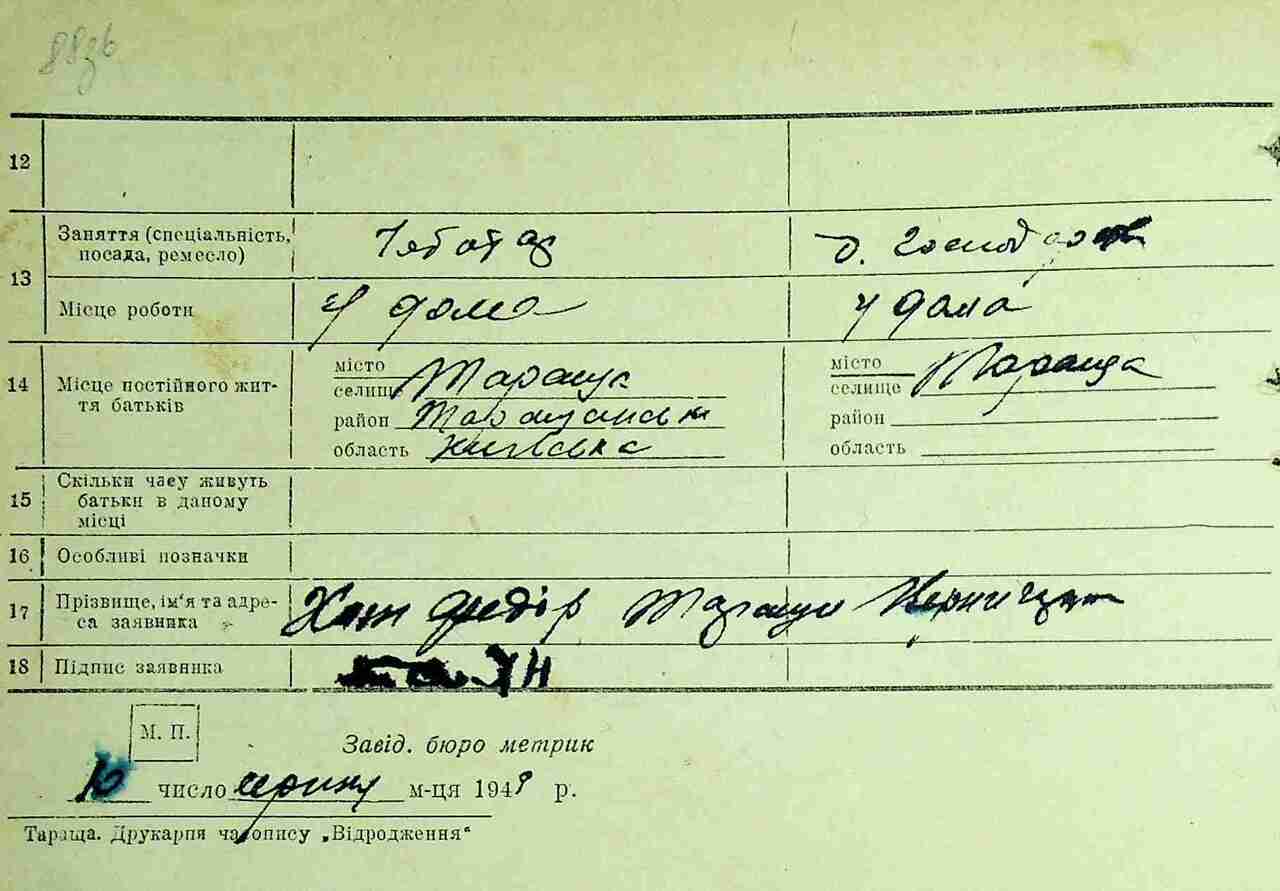 12
13 Заняття (спеціальність, посада, ремесло) Чоботар д. господар
Місце роботи У дома У дома
14 Місце постійного життя батьків
місто селище Тараща місто селище Тараща
район Таращанськ район
область Київська область
15 Скільки часу живуть батьки в даному місці
16 Особливі позначки
17 Прізвище, ім'я та адреса заявника Федір Тараща
18 Підпис заявника
М. П.
Завід. бюро метрик
10 число м-ця 194 р.
Тараща. Друкарня часопису „Відродження"